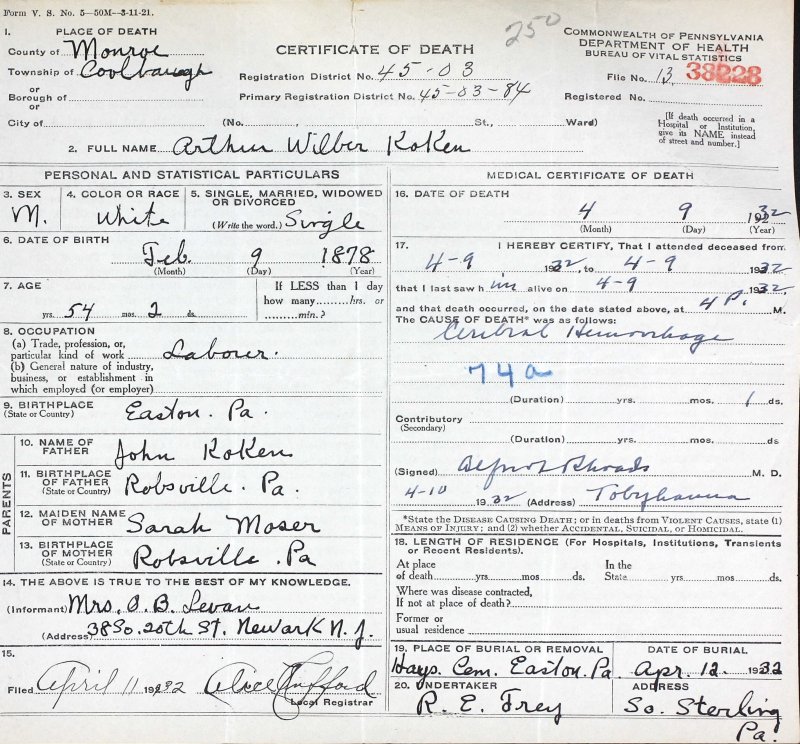 Form V. S. No. 5—50M—3-11-21.
250
1. PLACE OF DEATH
County of Monroe
Township of Coolbaugh
or
Borough of
or
City of
CERTIFICATE OF DEATH
Registration District No. 45-03
Primary Registration District No. 45-03-84
(No. , St., Ward)
COMMONWEALTH OF PENNSYLVANIA
DEPARTMENT OF HEALTH
BUREAU OF VITAL STATISTICS
File No. 13. 38228
Registered No.
[If death occurred in a
Hospital or Institution,
give its NAME instead
of street and number.]
2. FULL NAME Arthur Wilber Koken
PERSONAL AND STATISTICAL PARTICULARS
3. SEX M.
4. COLOR OR RACE White
5. SINGLE, MARRIED, WIDOWED
OR DIVORCED
(Write the word.) Single
6. DATE OF BIRTH
Feb. 9 1878
(Month) (Day) (Year)
7. AGE
54 yrs. 2 mos. ds.
If LESS than 1 day
how many hrs. or
min.?
8. OCCUPATION
(a) Trade, profession, or,
particular kind of work Laborer.
(b) General nature of industry,
business, or establishment in
which employed (or employer)
9. BIRTHPLACE
(State or Country) Easton. Pa.
PARENTS
10. NAME OF
FATHER John Koken
11. BIRTHPLACE
OF FATHER
(State or Country) Robsville. Pa.
12. MAIDEN NAME
OF MOTHER Sarah Moser
13. BIRTHPLACE
OF MOTHER
(State or Country) Robsville. Pa
14. THE ABOVE IS TRUE TO THE BEST OF MY KNOWLEDGE.
(Informant) Mrs. O. B. Levan
(Address) 38 So. 20th St. Newark N. J.
15.
Filed April 11 1932 Alice Hufford
Local Registrar
MEDICAL CERTIFICATE OF DEATH
16. DATE OF DEATH
4 9 1932
(Month) (Day) (Year)
17. I HEREBY CERTIFY, That I attended deceased from
4-9 1932, to 4-9 1932
that I last saw him alive on 4-9 1932,
and that death occurred, on the date stated above, at 4 P. M.
The CAUSE OF DEATH* was as follows:
Cerebral Hemorrhage
74a
(Duration) yrs. mos. 1 ds.
Contributory
(Secondary)
(Duration) yrs. mos. ds
(Signed) Rhoads M. D.
4-10 1932 (Address) Tobyhanna
*State the DISEASE CAUSING DEATH; or in deaths from VIOLENT CAUSES, state (1)
MEANS OF INJURY; and (2) whether ACCIDENTAL, SUICIDAL, or HOMICIDAL.
18. LENGTH OF RESIDENCE (For Hospitals, Institutions, Transients
or Recent Residents).
At place In the
of death yrs. mos ds. State yrs. mos. ds.
Where was disease contracted,
If not at place of death?
Former or
usual residence
19. PLACE OF BURIAL OR REMOVAL
Hays. Cem. Easton. Pa.
DATE OF BURIAL
Apr. 12. 1932
20. UNDERTAKER
R. E. Frey
ADDRESS
So. Sterling
Pa.